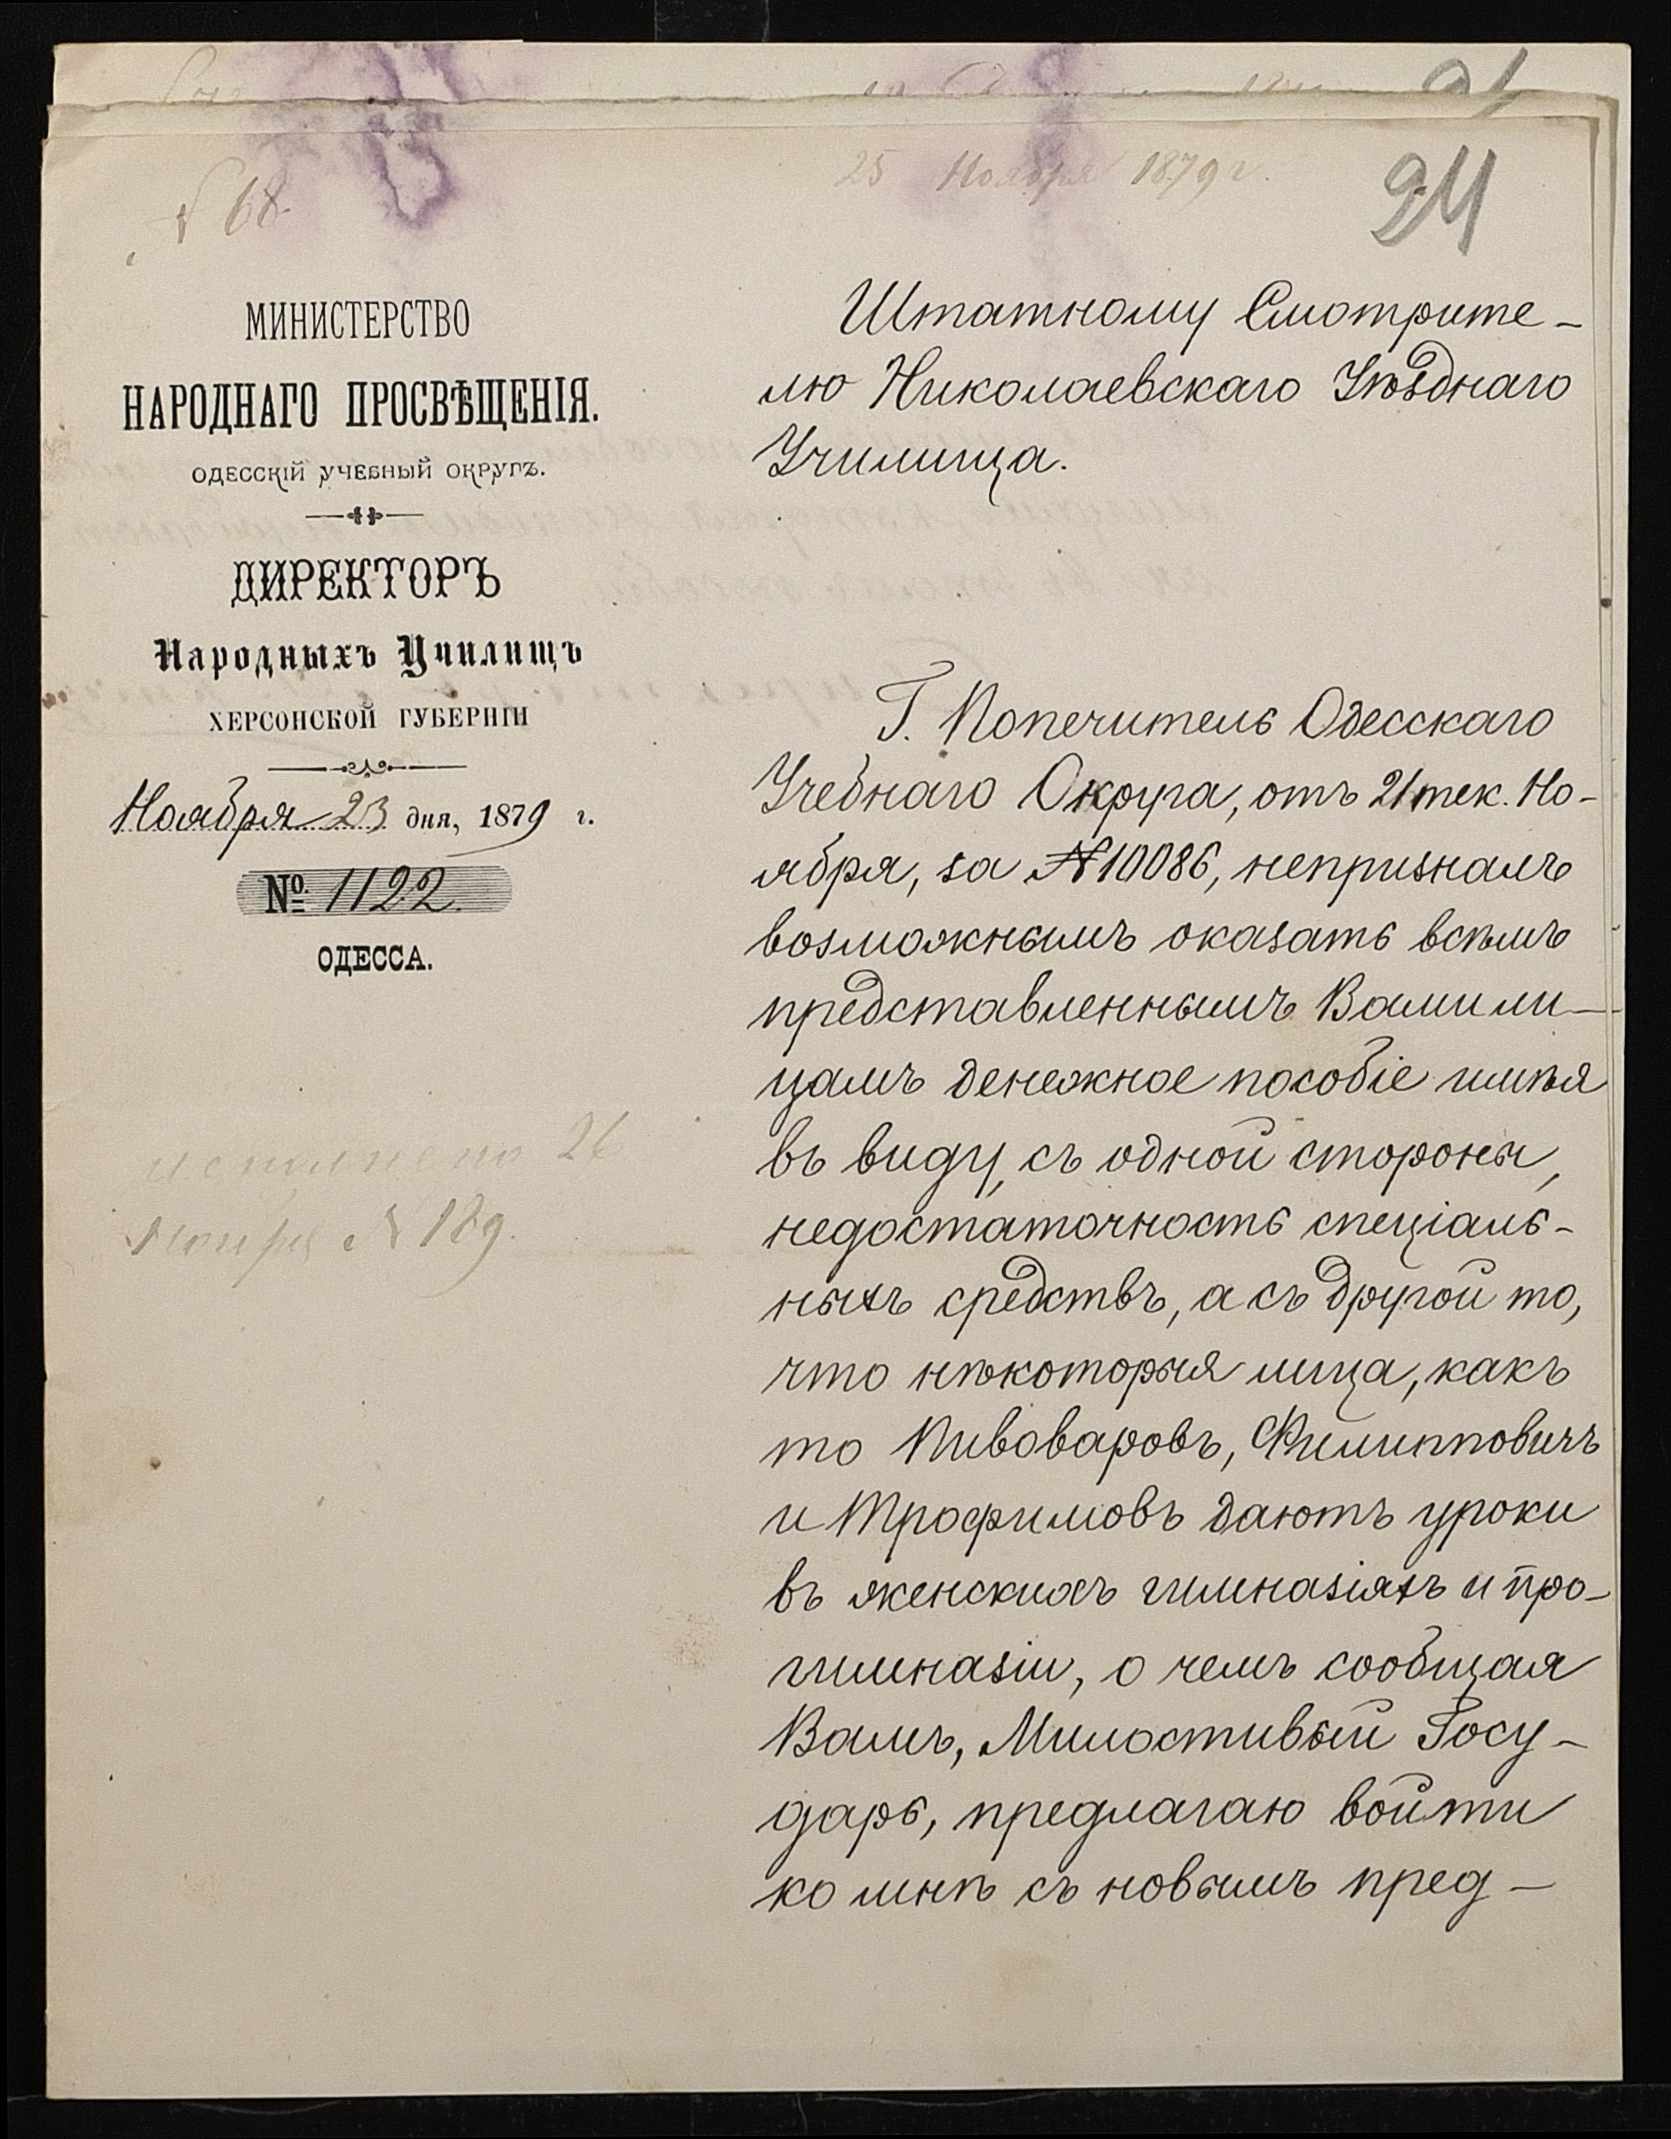 № 68.
25 Ноября 1879 г.
94
МИНИСТЕРСТВО
НАРОДНАГО ПРОСВѢЩЕНІЯ.
ОДЕССКІЙ УЧЕБНЫЙ ОКРУГЪ.
ДИРЕКТОРЪ
Народныхъ Училищъ
ХЕРСОНСКОЙ ГУБЕРНІИ
Ноября 23 дня, 1879 г.
№ 1122.
ОДЕССА.
исполнено 26
Ноября № 189.
Штатному Смотрите-
лю Николаевскаго Уѣзднаго
Училища.
Г. Попечитель Одесскаго
Учебнаго Округа, отъ 21 тек. Но-
ября, за № 10086, непризналъ
возможнымъ оказать всѣмъ
представленнымъ Вами ли-
цамъ денежное пособіе имѣя
въ виду, съ одной стороны,
недостаточность спеціаль-
ныхъ средствъ, а съ другой то,
что нѣкоторыя лица, какъ
то Пивоваровъ, Филипповичъ
и Трофимовъ даютъ уроки
въ женскихъ гимназіяхъ и про-
гимназіи, о чемъ сообщая
Вамъ, Милостивый Госу-
дарь, предлагаю войти
ко мнѣ съ новымъ пред-